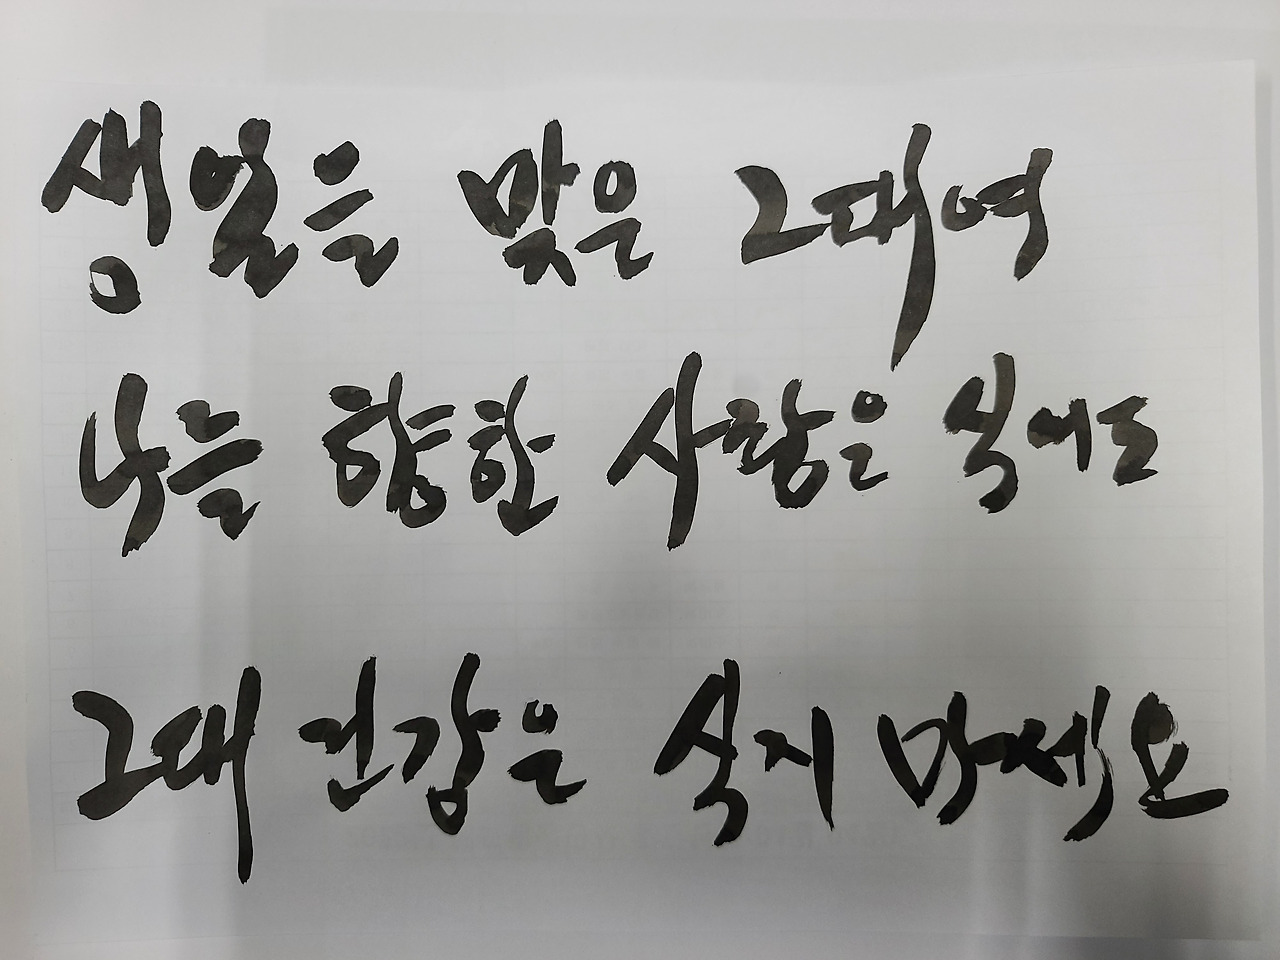 생일을 맞은 그대여
나를 향한 사랑은 식어도
그대 건강은 식지 마세요